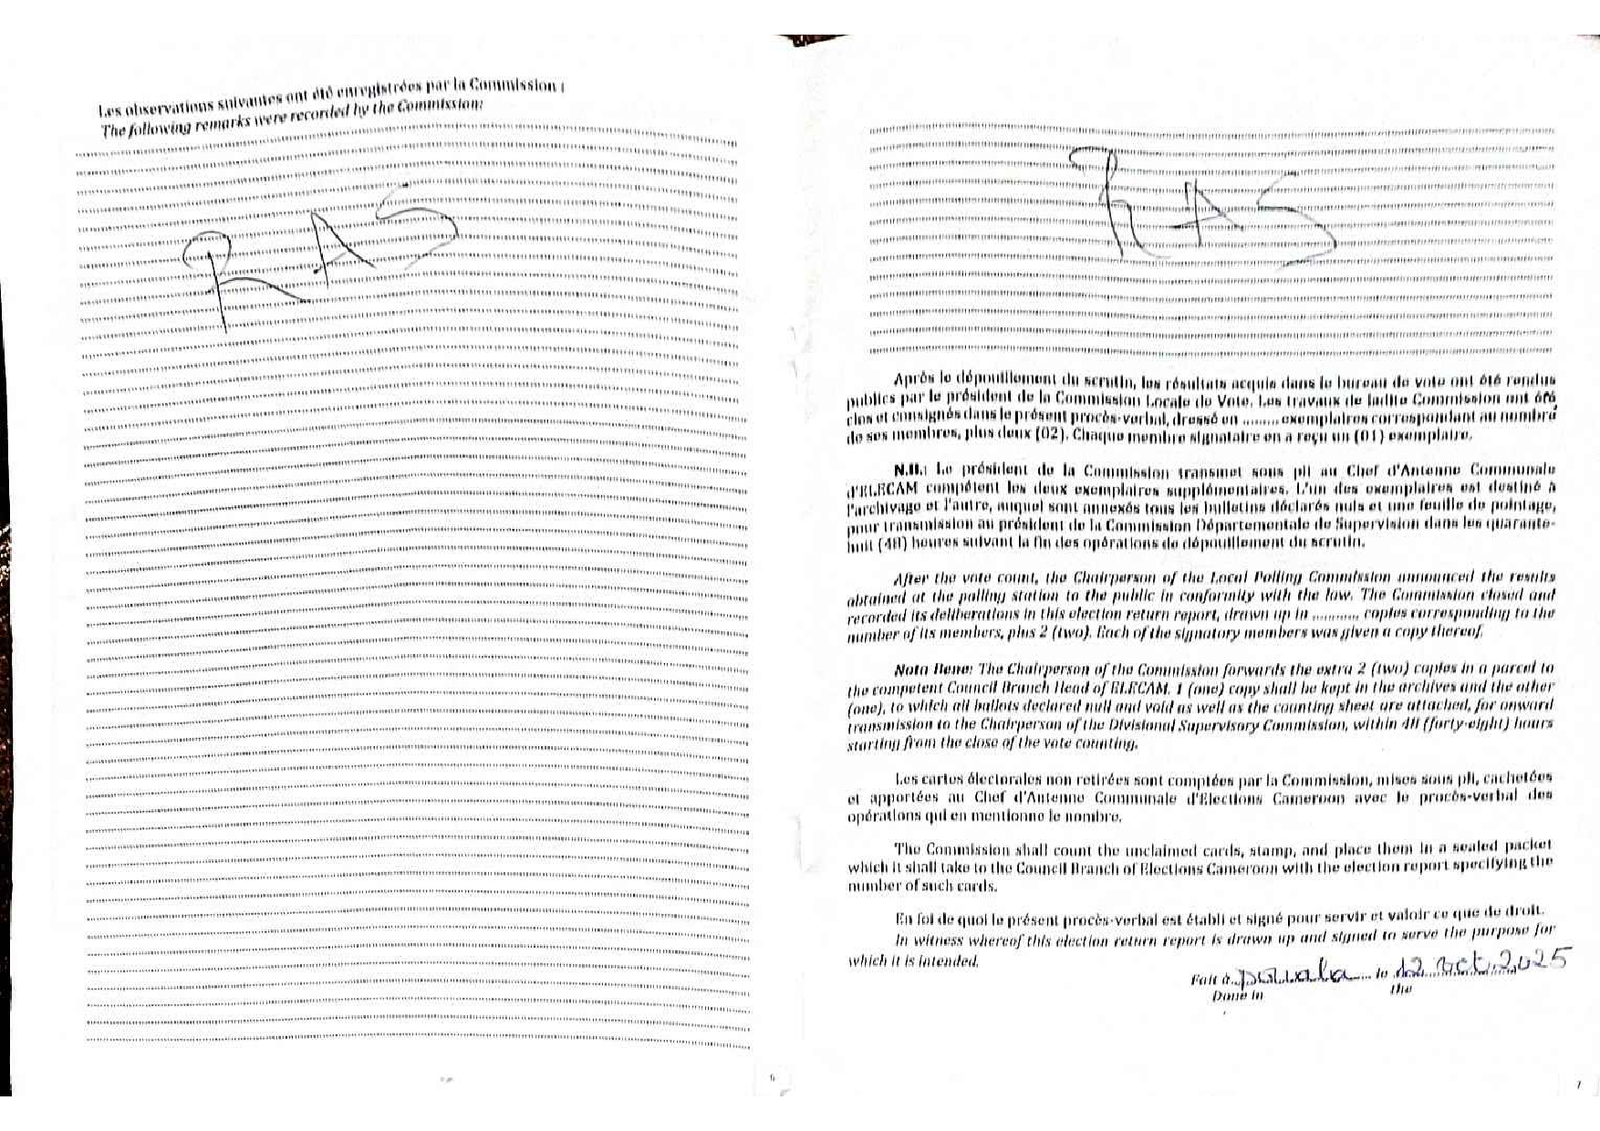 Les observations suivantes ont été enregistrées par la Commission :
The following remarks were recorded by the Commission:
RAS
6
RAS
Après le dépouillement du scrutin, les résultats acquis dans le bureau de vote ont été rendus
publics par le président de la Commission Locale de Vote. Les travaux de ladite Commission ont été
clos et consignés dans le présent procès-verbal, dressé en .......... exemplaires correspondant au nombre
de ses membres, plus deux (02). Chaque membre signataire en a reçu un (01) exemplaire.
N.B.: Le président de la Commission transmet sous pli au Chef d'Antenne Communale
d'ELECAM compétent les deux exemplaires supplémentaires. L'un des exemplaires est destiné à
l'archivage et l'autre, auquel sont annexés tous les bulletins déclarés nuls et une feuille de pointage,
pour transmission au président de la Commission Départementale de Supervision dans les quarante-
huit (48) heures suivant la fin des opérations de dépouillement du scrutin.
After the vote count, the Chairperson of the Local Polling Commission announced the results
obtained at the polling station to the public in conformity with the law. The Commission closed and
recorded its deliberations in this election return report, drawn up in .......... copies corresponding to the
number of its members, plus 2 (two). Each of the signatory members was given a copy thereof.
Nota Bene: The Chairperson of the Commission forwards the extra 2 (two) copies in a parcel to
the competent Council Branch Head of ELECAM. 1 (one) copy shall be kept in the archives and the other
(one), to which all ballots declared null and void as well as the counting sheet are attached, for onward
transmission to the Chairperson of the Divisional Supervisory Commission, within 48 (forty-eight) hours
starting from the close of the vote counting.
Les cartes électorales non retirées sont comptées par la Commission, mises sous pli, cachetées
et apportées au Chef d'Antenne Communale d'Elections Cameroon avec le procès-verbal des
opérations qui en mentionne le nombre.
The Commission shall count the unclaimed cards, stamp, and place them in a sealed packet
which it shall take to the Council Branch of Elections Cameroon with the election report specifying the
number of such cards.
En foi de quoi le présent procès-verbal est établi et signé pour servir et valoir ce que de droit.
In witness whereof this election return report is drawn up and signed to serve the purpose for
which it is intended.
Fait à Douala le 12 oct. 2025
Done in the
7